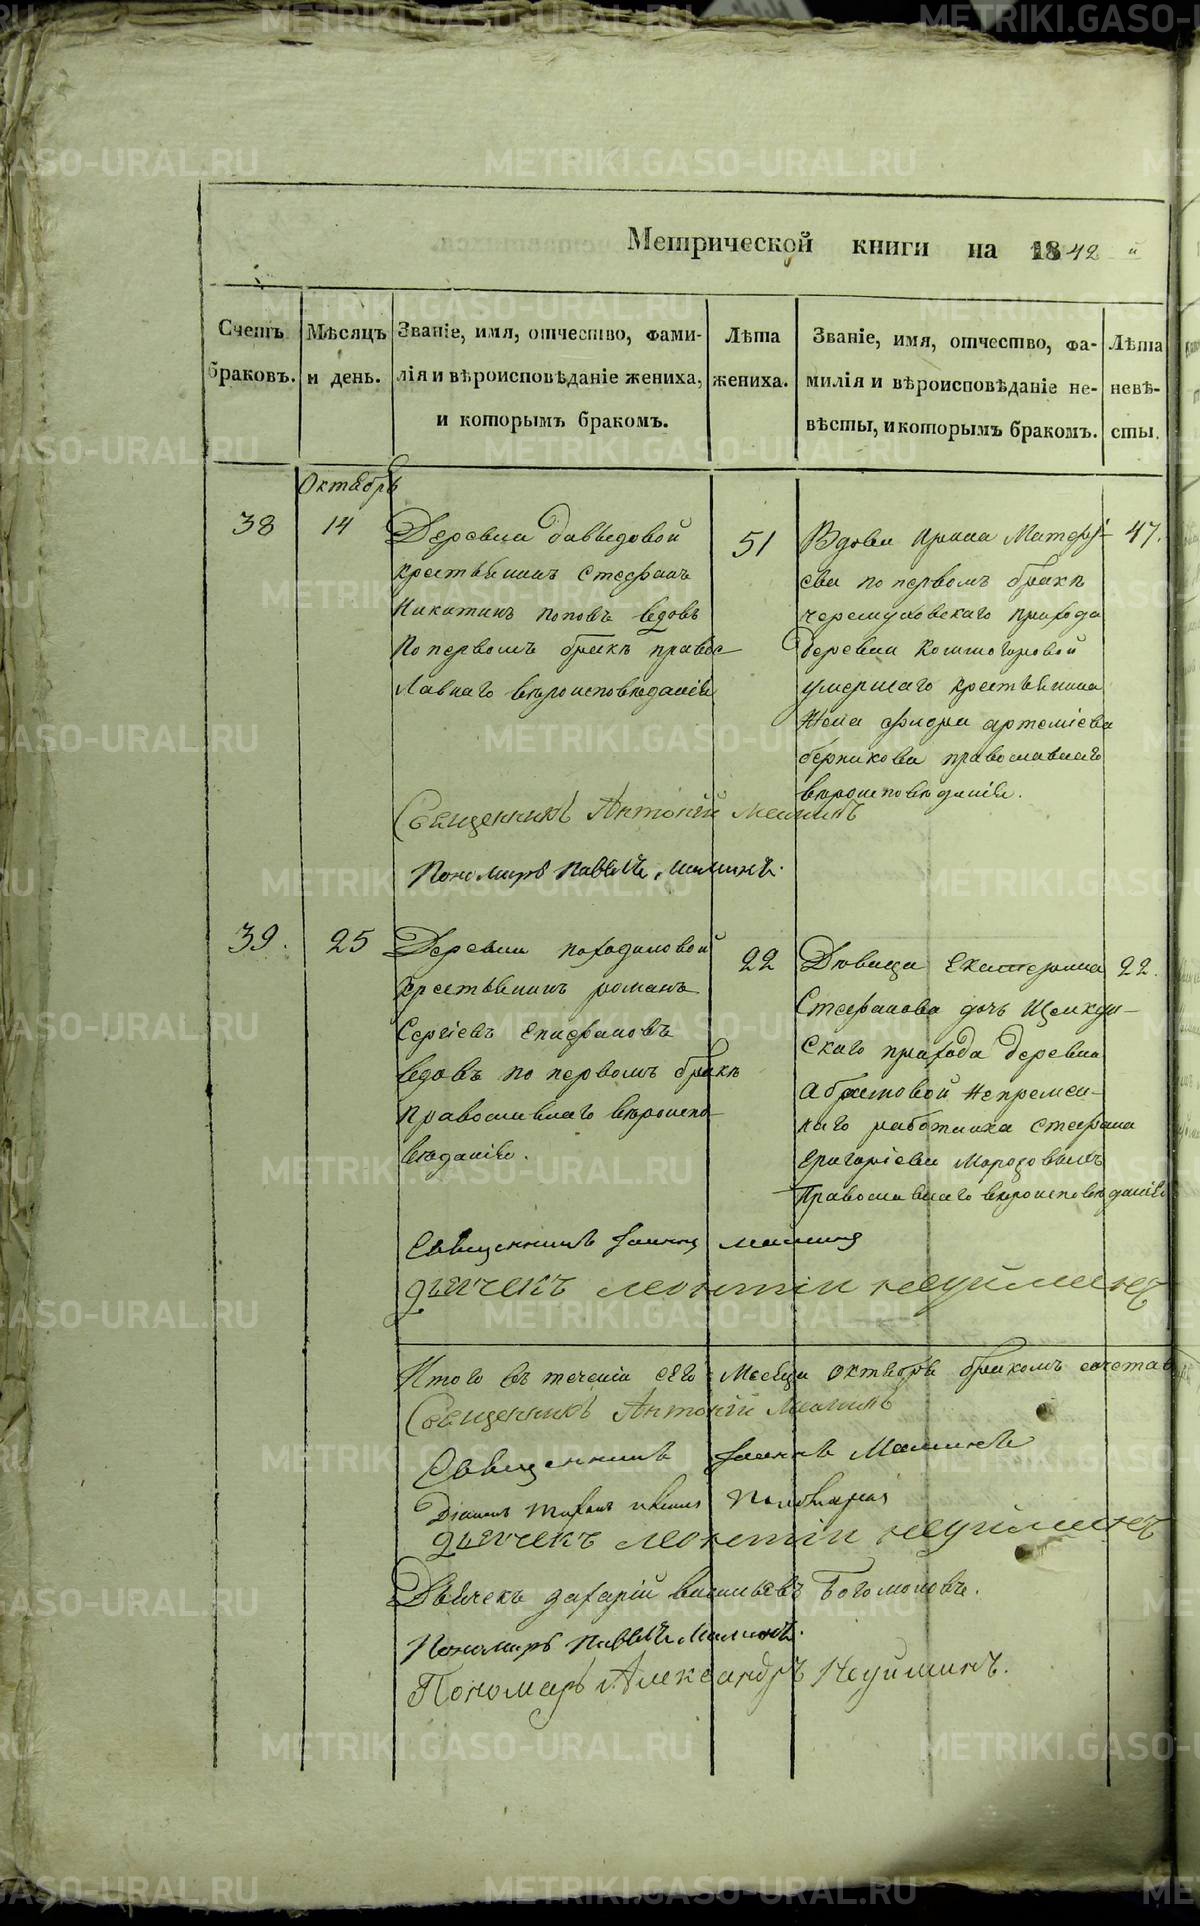 Метрической книги на 1842 й
Счетъ браковъ.
Мѣсяцъ и день.
Званіе, имя, отчество, фами-
лія и вѣроисповѣданіе жениха,
и которымъ бракомъ.
Лѣта
жениха.
Званіе, имя, отчество, фа-
милія и вѣроисповѣданіе не-
вѣсты, и которымъ бракомъ.
Лѣта
невѣ-
сты.
Октябрь
38
14
Деревни Давыдовой
крестьянинъ Стефанъ
Никитинъ Поповъ вдовъ
по первомъ бракѣ правос
лавнаго вѣроисповѣданія
51
Вдова Ирина
ева по первомъ бракѣ
прихода
деревни
умершаго крестьянина
жена Артеміева
православнаго
вѣроисповѣданія.
47.
Священникъ Антоній Маминъ
Пономарь Павелъ Маминъ.
39.
25
Деревни
крестьянинъ Романъ
Сергіевъ Епифановъ
вдовъ по первомъ бракѣ
православнаго вѣроиспо-
вѣданія.
22
Дѣвица Екатерина
Стефанова дочь Щелкун-
скаго прихода деревни
Абрамовой непремен-
наго работника Стефана
Григоріева
православнаго вѣроисповѣданія
22.
Священникъ Іоаннъ Маминъ
Дьячекъ Леонтій Неуйминъ
Итого въ теченіи сего месяца октября бракомъ сочета
Священникъ Антоній Маминъ
Священникъ Іоаннъ Маминъ
Дьячекъ Леонтій Неуйминъ
Дьячекъ Захарій Васильевъ Богомоловъ.
Пономарь Павелъ Маминъ.
Пономарь Александръ Неуйминъ.
METRIKI.GASO-URAL.RU